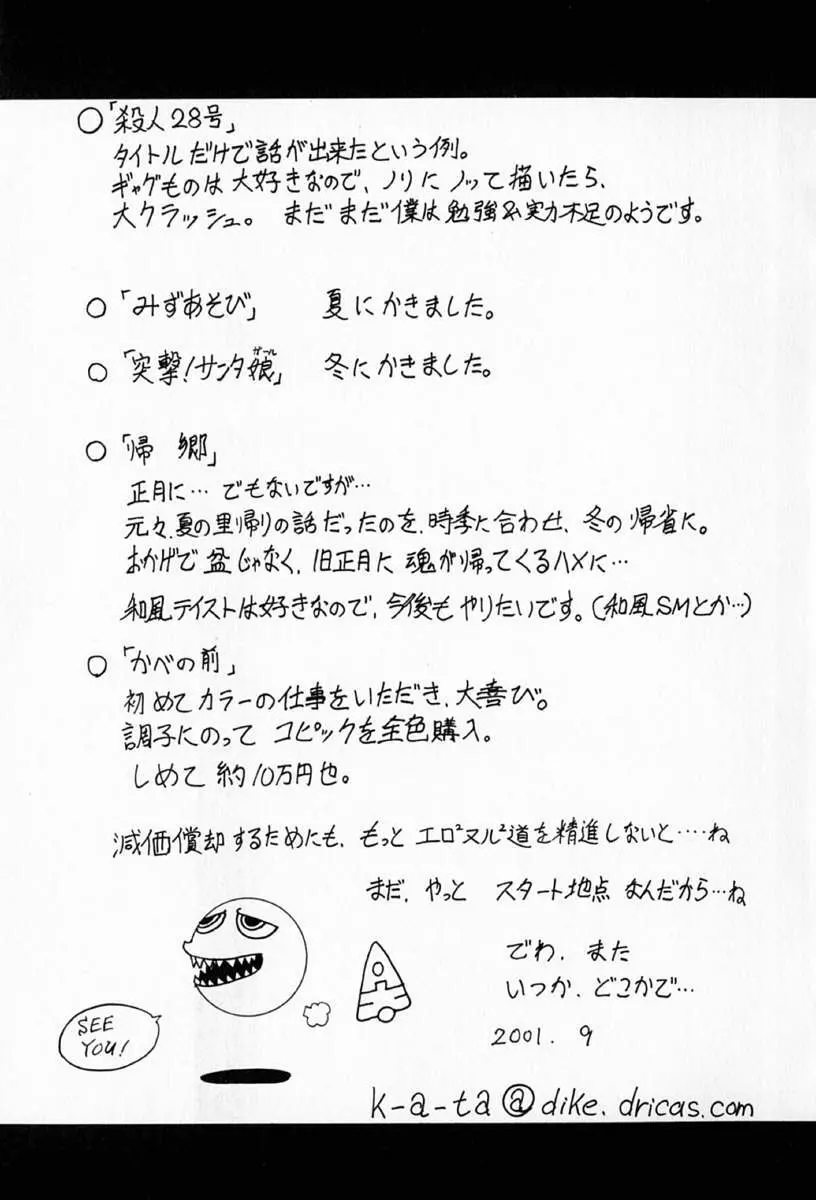 ○「殺人28号」
タイトルだけで話が出来たという例。
ギャグものは大好きなので、ノリにノッて描いたら、
大クラッシュ。 まだまだ僕は勉強&実力不足のようです。
○「みずあそび」 夏にかきました。
ガール
○「突撃!サンタ娘」 冬にかきました。
○「帰 郷」
正月に… でもないですが…
元々、夏の里帰りの話だったのを、時季に合わせ、冬の帰省に。
おかげで盆じゃなく、旧正月に魂が帰ってくるハメに…
和風テイストは好きなので、今後もやりたいです。(和風SMとか…)
○「かべの前」
初めてカラーの仕事をいただき、大喜び。
調子にのって コピックを全色購入。
しめて約10万円也。
減価償却するためにも、もっと エロ²ヌル²道を精進しないと‥‥ね
まだ、やっと スタート地点 なんだから…ね
でわ、また
いつか、どこかで…
2001. 9
SEE
YOU!
k-a-ta@dike.dricas.com